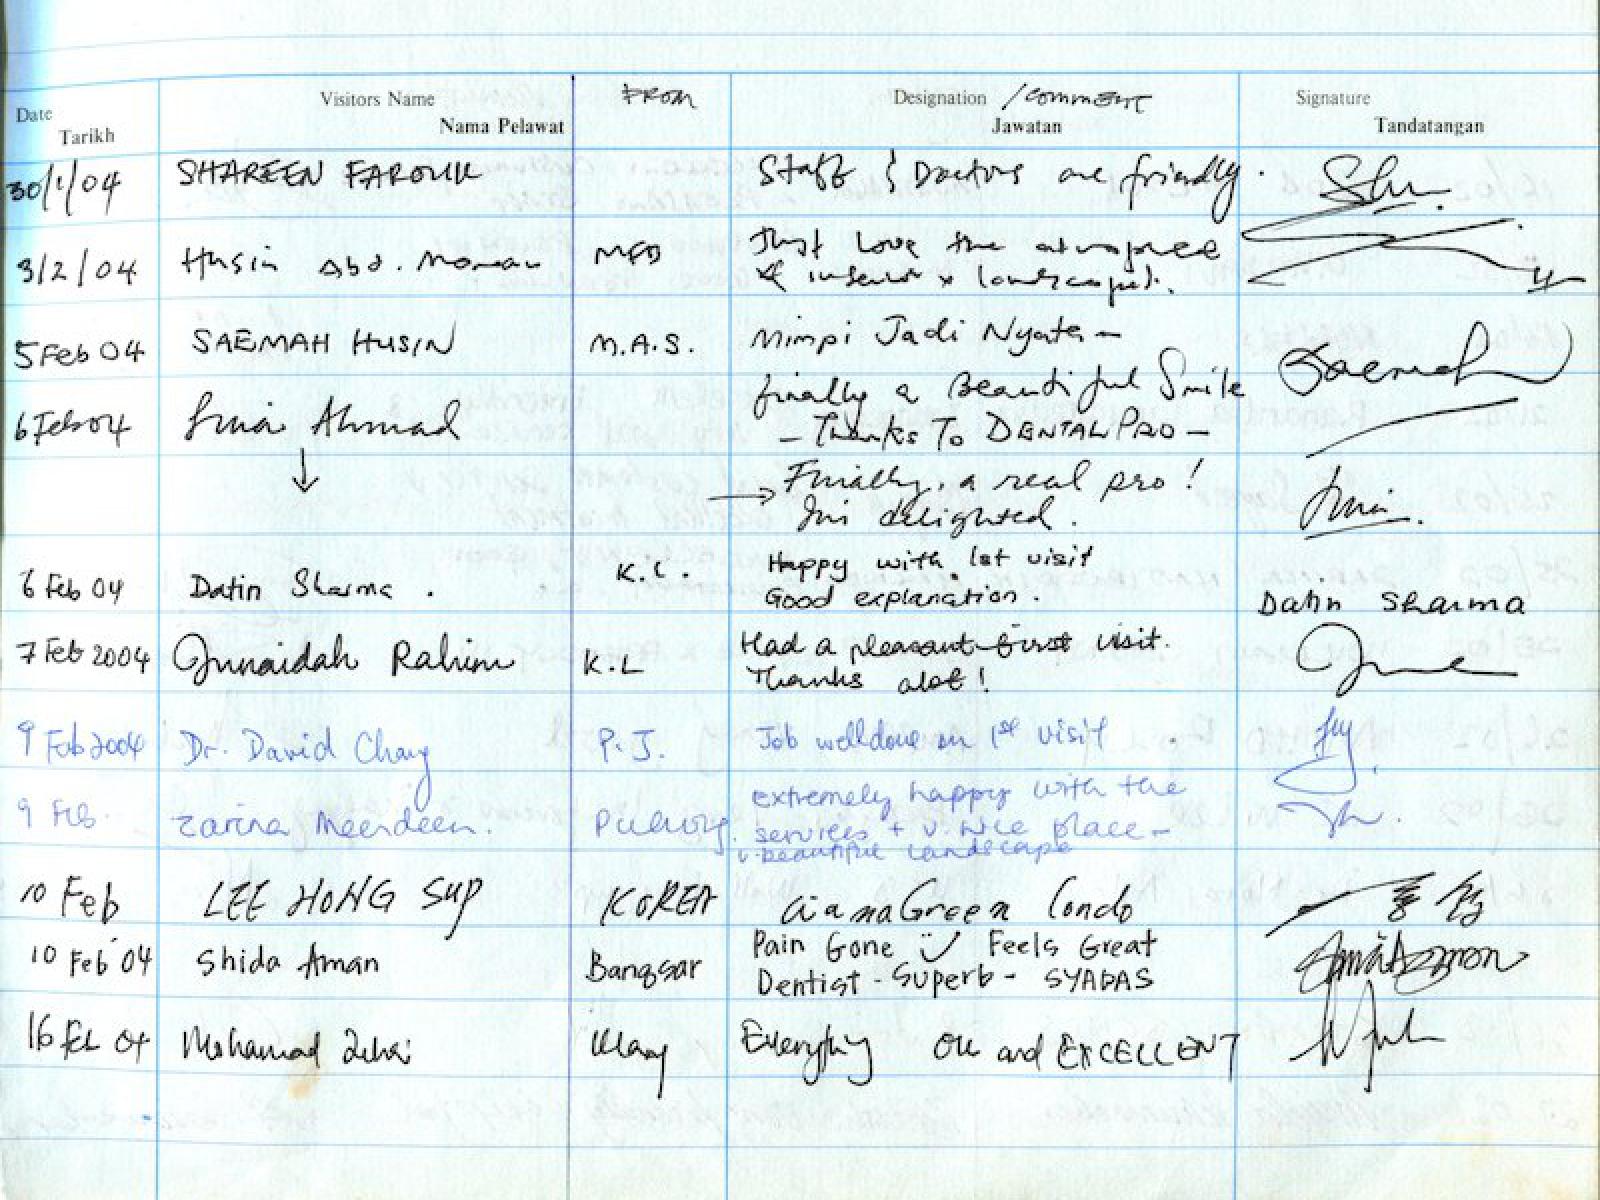 Date Visitors Name FROM Designation /COMMENT Signature
Tarikh Nama Pelawat Jawatan Tandatangan
30/1/04 SHAREEN FAROUK Staff & Doctors are friendly.
3/2/04 Husin Abd. MAS Just Love the
& x landscape).
5 Feb 04 SAEMAH HUSIN M.A.S. Mimpi Jadi Nyata – Saemah
finally a Beautiful Smile
6 Feb 04 Ahmad – Thanks To DENTALPRO –
↓ → Finally, a real pro!
delighted.
6 Feb 04 Datin Sharma. K.L. Happy with 1st visit
Good explanation. Datin Sharma
7 Feb 2004 Junaidah Rahim K.L Had a pleasant first visit.
Thanks alot!
9 Feb 2004 Dr. David Chang P.J. Job welldone on 1st visit
9 Feb. Zarina Meerdeen. extremely happy with the
services + v. nice place –
v. beautiful landscape
10 Feb LEE HONG SUP KOREA Condo
10 Feb '04 Shida Aman Bangsar Pain Gone Feels Great
Dentist - Superb - SYABAS
16 Feb 04 Mohamad Klang Everything OK and EXCELLENT